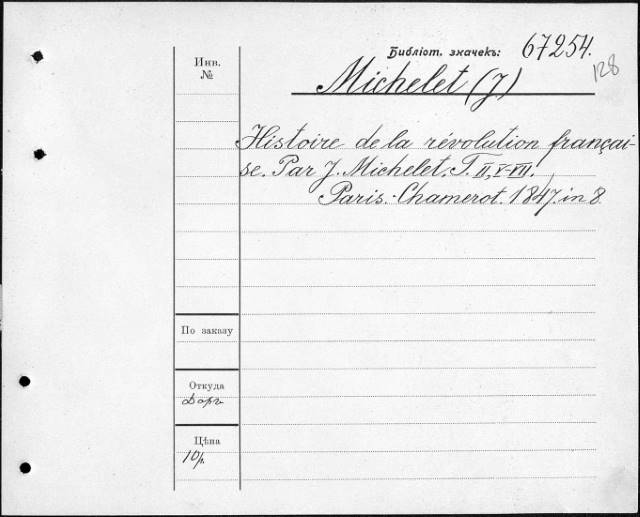 Библіот. значекъ: 67254.
128
Инв.
№
Michelet (J)
Histoire de la révolution françai-
se. Par J. Michelet. T. II, V-VII.
Paris. Chamerot. 1847. in 8.
По заказу
Откуда
Дарг
Цѣна
10р.